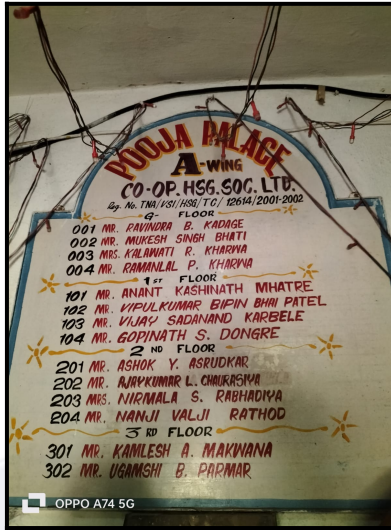 POOJA PALACE
A-WING
CO-OP. HSG. SOC. LTD.
Reg. No. TNA/VSI/HSG/TC/ 12614/2001-2002
G- FLOOR
001 MR. RAVINDRA B. KADAGE
002 MR. MUKESH SINGH BHATI
003 MRS. KALAWATI R. KHARWA
004 MR. RAMANLAL P. KHARWA
1ST FLOOR
101 MR. ANANT KASHINATH MHATRE
102 MR. VIPULKUMAR BIPIN BHAI PATEL
103 MR. VIJAY SADANAND KARBELE
104 MR. GOPINATH S. DONGRE
2 ND FLOOR
201 MR. ASHOK Y. ASRUDKAR
202 MR. AJAYKUMAR L. CHAURASIYA
203 MRS. NIRMALA S. RABHADIYA
204 MR. NANJI VALJI RATHOD
3 RD FLOOR
301 MR. KAMLESH A. MAKWANA
302 MR. UGAMSHI B. PARMAR
OPPO A74 5G